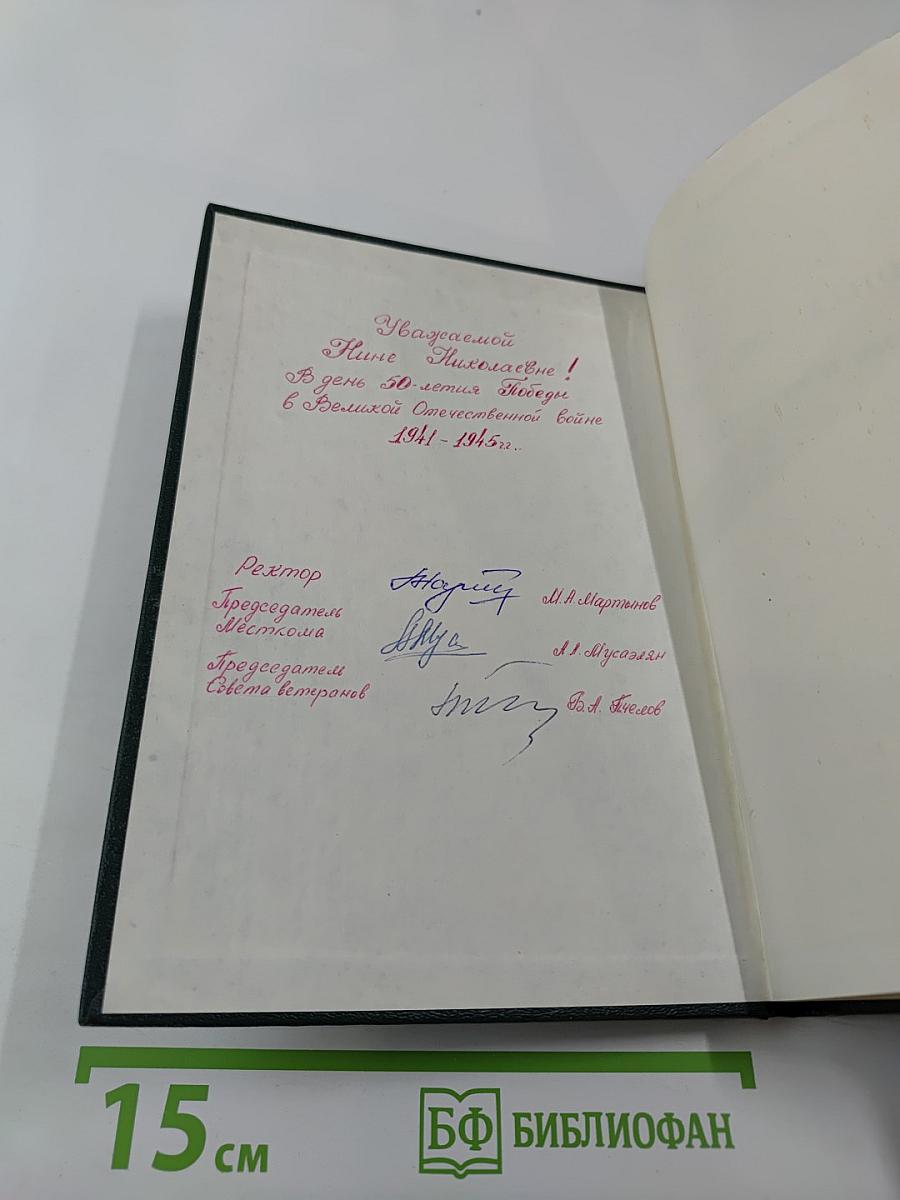 Уважаемой
Нине Николаевне!
В день 50-летия Победы
в Великой Отечественной войне
1941-1945 г.г..
Ректор М.А. Мартынов
Председатель
Месткома А.А. Мусаэлян
Председатель
Совета ветеранов В.А. Пчелов
15 см
БФ БИБЛИОФАН